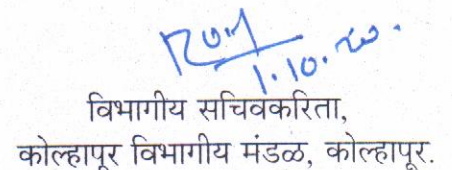 1.10.20.
विभागीय सचिवकरिता,
कोल्हापूर विभागीय मंडळ, कोल्हापूर.